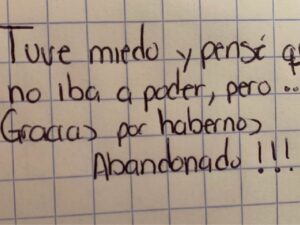 Tuve miedo y pensé q
no iba a poder, pero ..
Gracias por habernos
Abandonado !!!